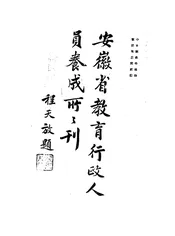 安徽省教育行政人
員養成所所刊
程天放題